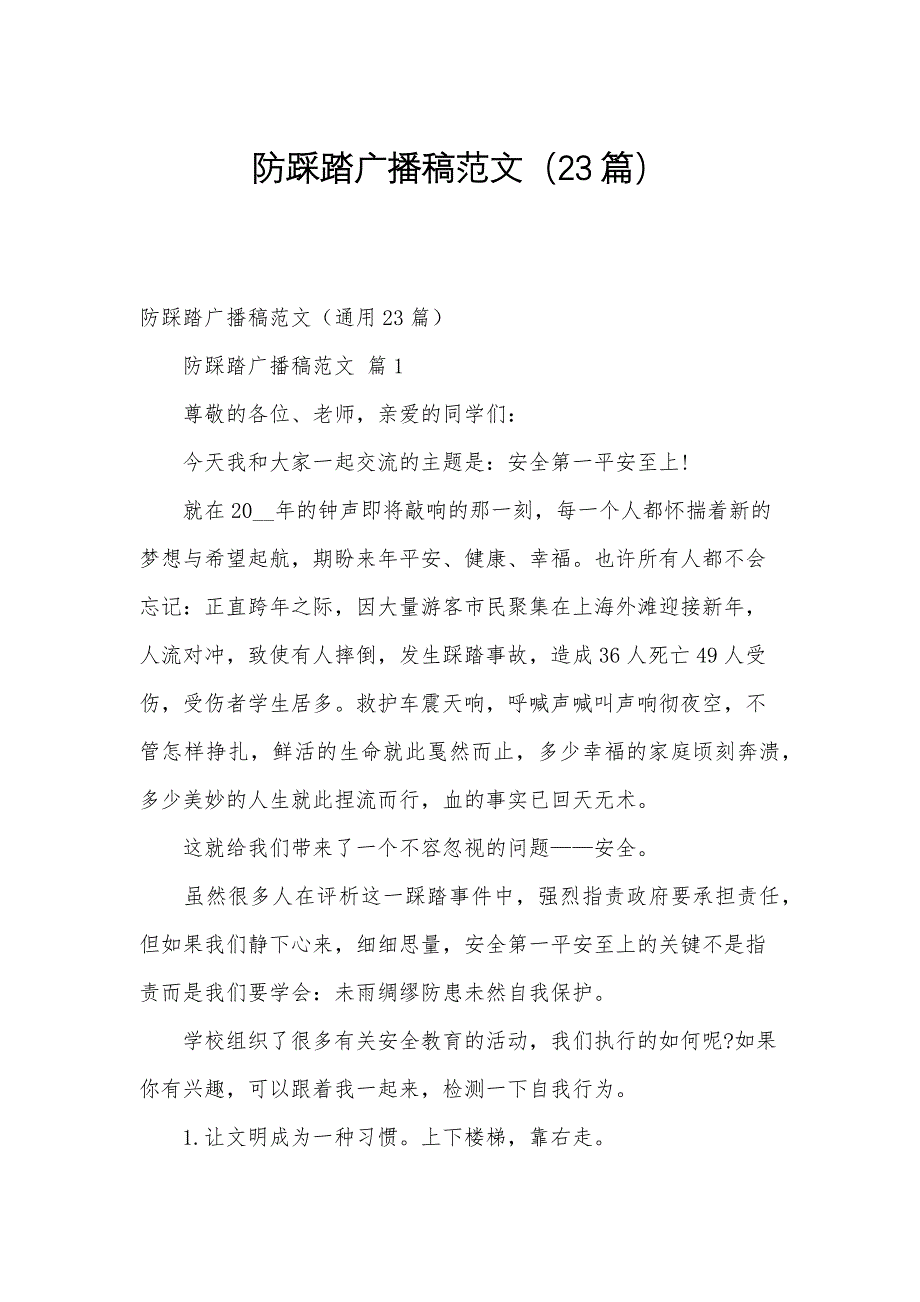 防踩踏广播稿范文（23 篇）
防踩踏广播稿范文（通用 23 篇）
防踩踏广播稿范文 篇 1
尊敬的各位、老师，亲爱的同学们：
今天我和大家一起交流的主题是：安全第一平安至上!
就在 20__年的钟声即将敲响的那一刻，每一个人都怀揣着新的
梦想与希望起航，期盼来年平安、健康、幸福。也许所有人都不会
忘记：正直跨年之际，因大量游客市民聚集在上海外滩迎接新年，
人流对冲，致使有人摔倒，发生踩踏事故，造成 36 人死亡 49 人受
伤，受伤者学生居多。救护车震天响，呼喊声喊叫声响彻夜空，不
管怎样挣扎，鲜活的生命就此戛然而止，多少幸福的家庭顷刻奔溃，
多少美妙的人生就此捏流而行，血的事实已回天无术。
这就给我们带来了一个不容忽视的问题——安全。
虽然很多人在评析这一踩踏事件中，强烈指责政府要承担责任，
但如果我们静下心来，细细思量，安全第一平安至上的关键不是指
责而是我们要学会：未雨绸缪防患未然自我保护。
学校组织了很多有关安全教育的活动，我们执行的如何呢?如果
你有兴趣，可以跟着我一起来，检测一下自我行为。
1.让文明成为一种习惯。上下楼梯，靠右走。